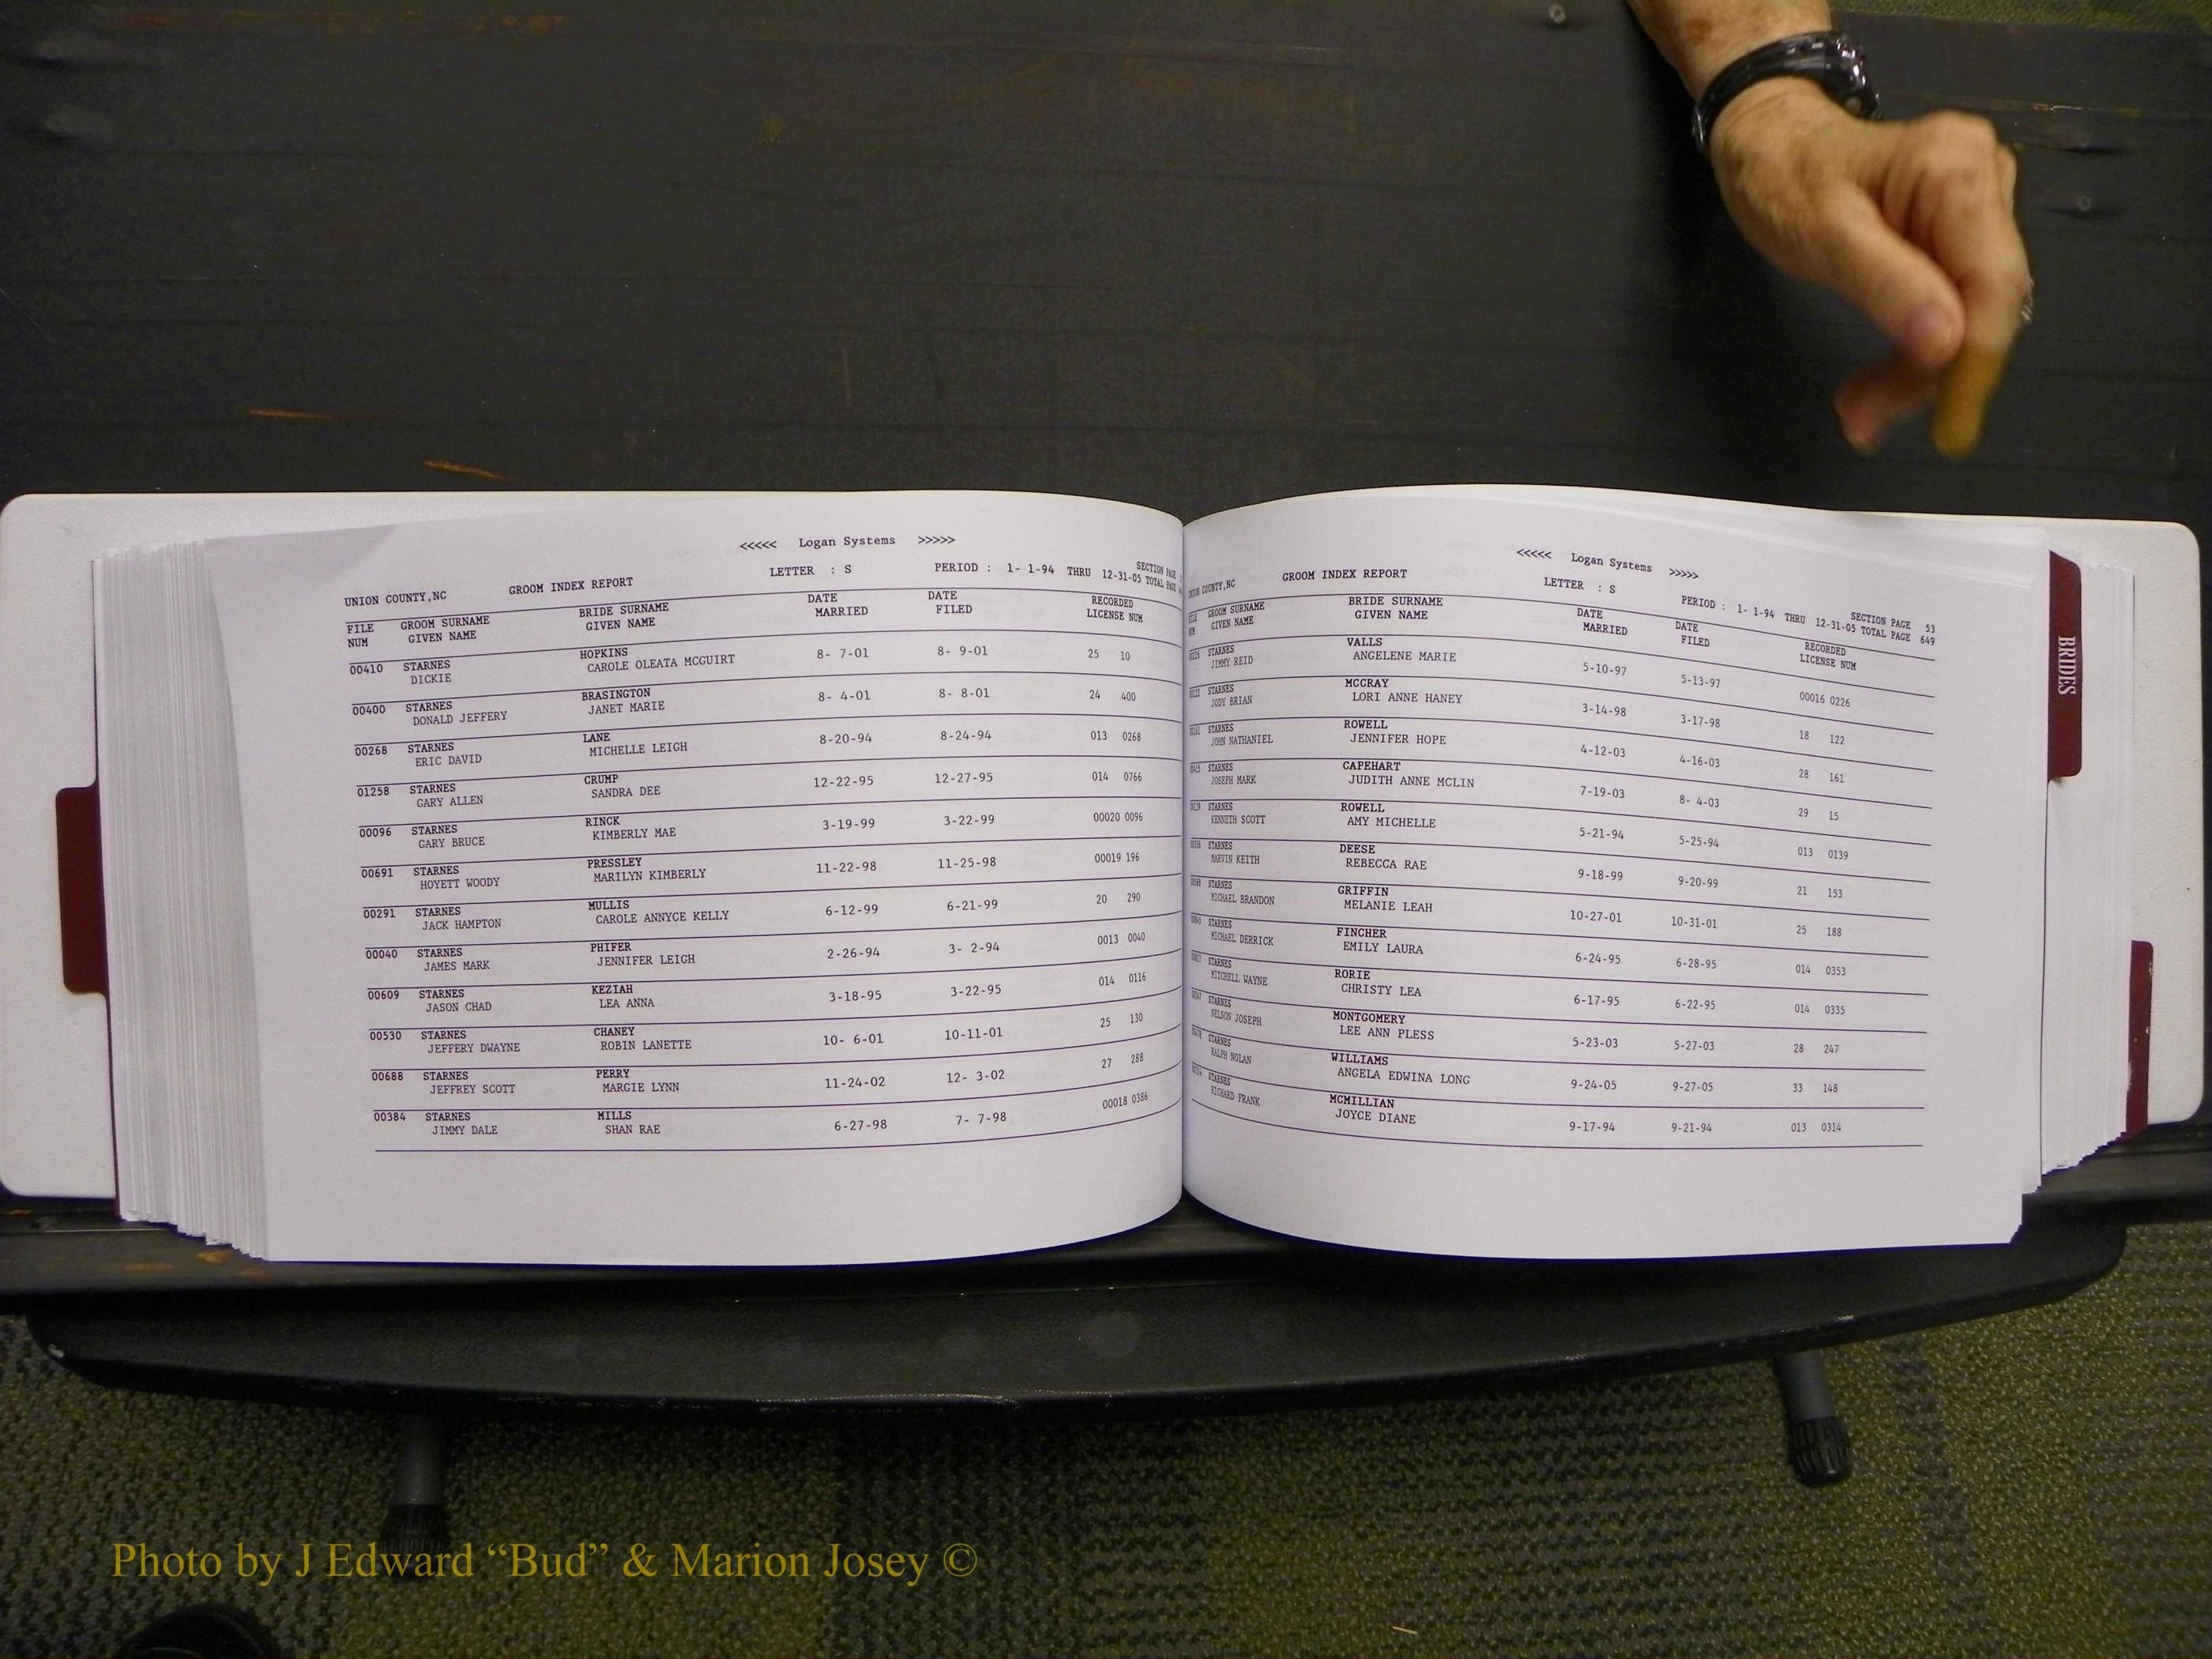 <<<<< Logan Systems >>>>>
UNION COUNTY,NC GROOM INDEX REPORT LETTER : S PERIOD : 1- 1-94 THRU 12-31-05 SECTION PAGE
TOTAL PAGE
FILE GROOM SURNAME BRIDE SURNAME DATE DATE RECORDED
NUM GIVEN NAME GIVEN NAME MARRIED FILED LICENSE NUM
00410 STARNES HOPKINS 8- 7-01 8- 9-01 25 10
DICKIE CAROLE OLEATA MCGUIRT
00400 STARNES BRASINGTON 8- 4-01 8- 8-01 24 400
DONALD JEFFERY JANET MARIE
00268 STARNES LANE 8-20-94 8-24-94 013 0268
ERIC DAVID MICHELLE LEIGH
01258 STARNES CRUMP 12-22-95 12-27-95 014 0766
GARY ALLEN SANDRA DEE
00096 STARNES RINCK 3-19-99 3-22-99 00020 0096
GARY BRUCE KIMBERLY MAE
00691 STARNES PRESSLEY 11-22-98 11-25-98 00019 196
HOYETT WOODY MARILYN KIMBERLY
00291 STARNES MULLIS 6-12-99 6-21-99 20 290
JACK HAMPTON CAROLE ANNYCE KELLY
00040 STARNES PHIFER 2-26-94 3- 2-94 0013 0040
JAMES MARK JENNIFER LEIGH
00609 STARNES KEZIAH 3-18-95 3-22-95 014 0116
JASON CHAD LEA ANNA
00530 STARNES CHANEY 10- 6-01 10-11-01 25 130
JEFFERY DWAYNE ROBIN LANETTE
00688 STARNES PERRY 11-24-02 12- 3-02 27 288
JEFFREY SCOTT MARGIE LYNN
00384 STARNES MILLS 6-27-98 7- 7-98 00018 0386
JIMMY DALE SHAN RAE
<<<<< Logan Systems >>>>>
UNION COUNTY,NC GROOM INDEX REPORT LETTER : S PERIOD : 1- 1-94 THRU 12-31-05 SECTION PAGE 53
TOTAL PAGE 649
FILE GROOM SURNAME BRIDE SURNAME DATE DATE RECORDED
NUM GIVEN NAME GIVEN NAME MARRIED FILED LICENSE NUM
STARNES VALLS 5-10-97 5-13-97 00016 0226
JIMMY REID ANGELENE MARIE
STARNES MCCRAY 3-14-98 3-17-98 18 122
JODY BRIAN LORI ANNE HANEY
STARNES ROWELL 4-12-03 4-16-03 28 161
JOHN NATHANIEL JENNIFER HOPE
STARNES CAPEHART 7-19-03 8- 4-03 29 15
JOSEPH MARK JUDITH ANNE MCLIN
STARNES ROWELL 5-21-94 5-25-94 013 0139
KENNETH SCOTT AMY MICHELLE
STARNES DEESE 9-18-99 9-20-99 21 153
MARVIN KEITH REBECCA RAE
STARNES GRIFFIN 10-27-01 10-31-01 25 188
MICHAEL BRANDON MELANIE LEAH
STARNES FINCHER 6-24-95 6-28-95 014 0353
MICHAEL DERRICK EMILY LAURA
STARNES RORIE 6-17-95 6-22-95 014 0335
MITCHELL WAYNE CHRISTY LEA
STARNES MONTGOMERY 5-23-03 5-27-03 28 247
NELSON JOSEPH LEE ANN PLESS
STARNES WILLIAMS 9-24-05 9-27-05 33 148
RALPH NOLAN ANGELA EDWINA LONG
STARNES MCMILLIAN 9-17-94 9-21-94 013 0314
RICHARD FRANK JOYCE DIANE
BRIDES
Photo by J Edward “Bud” & Marion Josey ©